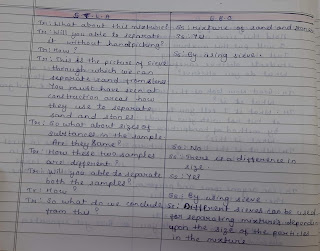 Tr: What about this mixture? Ss: mixture of sand and stones
Tr: Will you able to separate Ss: Yes
it without handpicking?
Tr: How? Ss: By using sieve.
Tr: This is the picture of sieve
through which we can
separate sand from stones
You must have seen at
construction areas how
they use to separate
sand and stones.
Tr: So what about sizes of
substances in the sample
Are they same? Ss: No
Tr: How these two samples Ss: There is a difference in
are different? size.
Tr: Will you able to separate Ss: Yes
both the samples?
Tr: How? Ss: By using sieve
Tr: So what do we conclude Ss: Different sieves can be used
from this? for separating mixtures depending
upon the size of the particles
in the mixture.